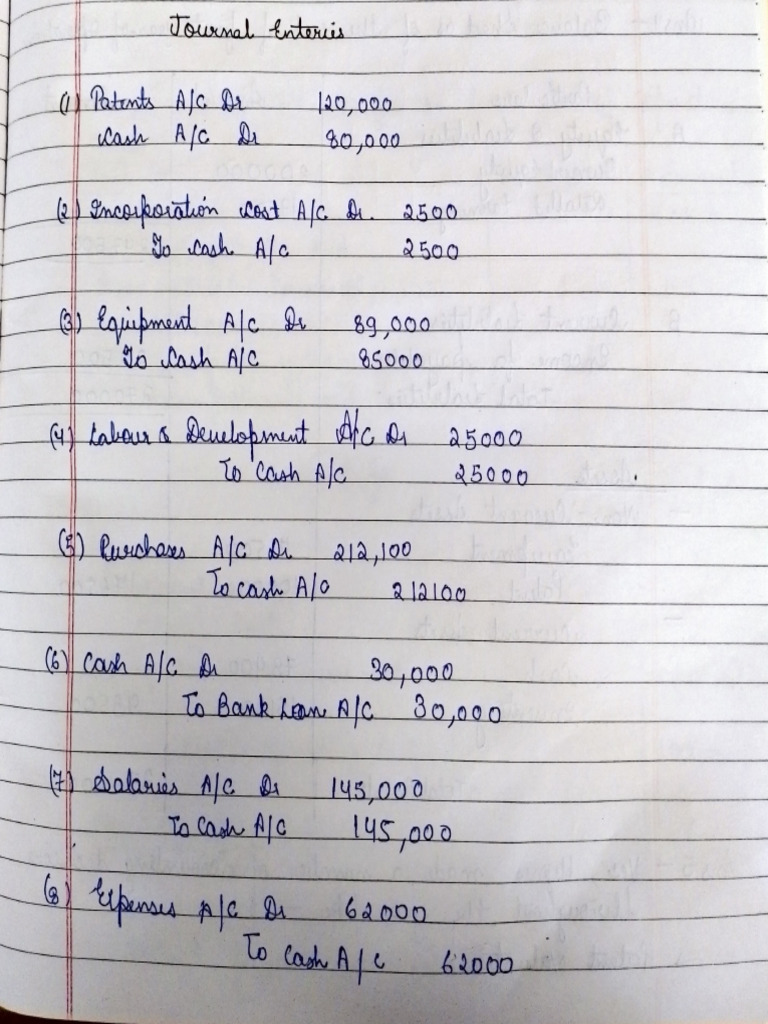 Journal Enteries
(1) Patents A/C Dr 120,000
Cash A/C Dr 80,000
(2) Incorporation Cost A/C Dr. 2500
To Cash A/C 2500
(3) Equipment A/C Dr 89,000
To Cash A/C 85000
(4) Labour & Development A/C Dr 25000
To Cash A/C 25000
(5) Purchases A/C Dr 212,100
To Cash A/C 212100
(6) Cash A/C Dr 30,000
To Bank Loan A/C 30,000
(7) Salaries A/C Dr 145,000
To Cash A/C 145,000
(8) Expenses A/C Dr 62000
To Cash A/C 62000